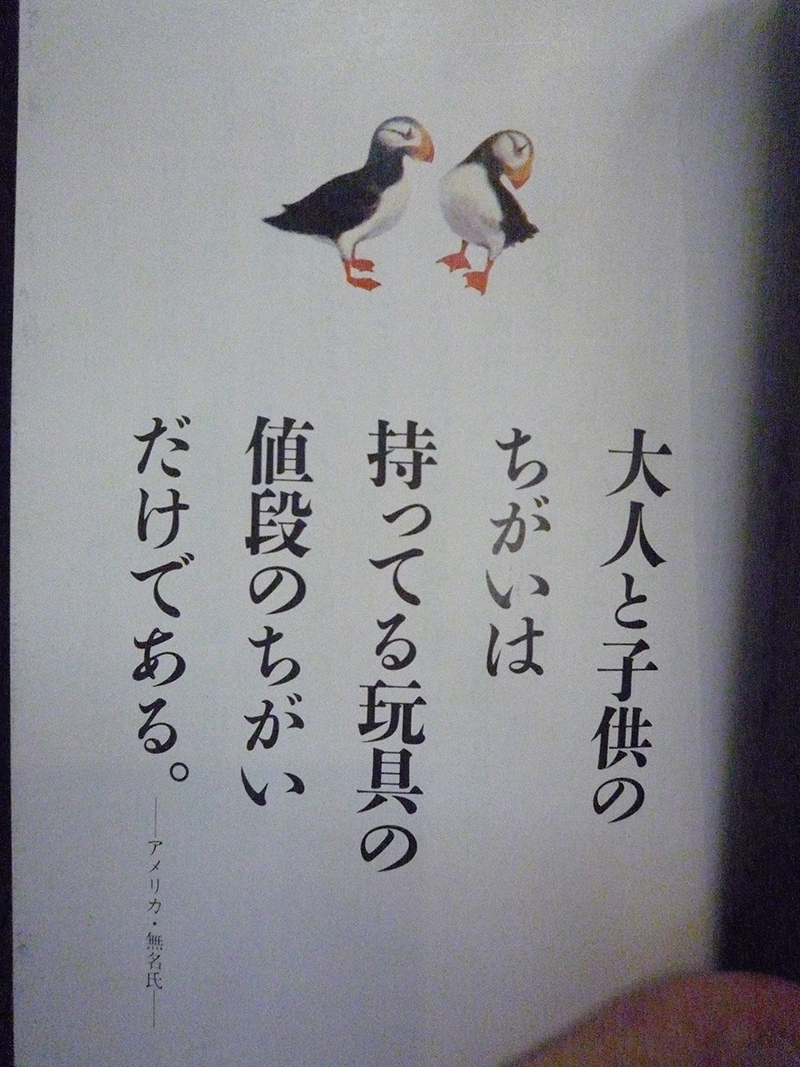 大人と子供の
ちがいは
持ってる玩具の
値段のちがい
だけである。
―アメリカ・無名氏―